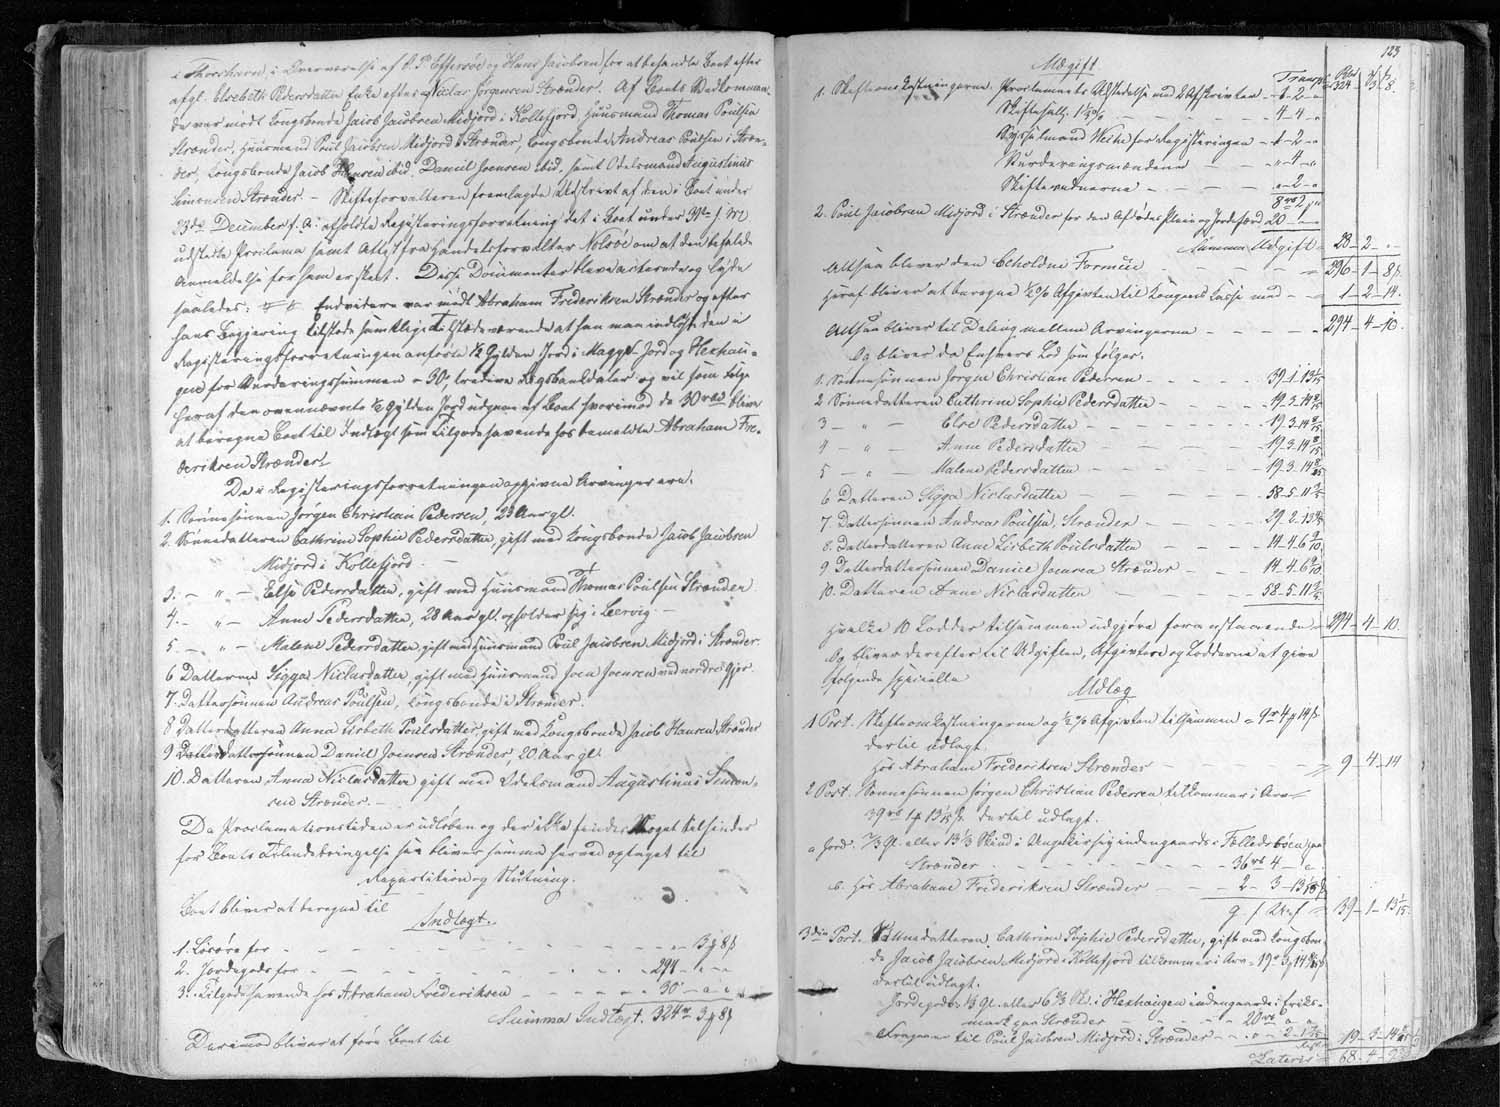 i Thorshavn, i Overværelse af A. P. Effersöe og Hans Jacobsen for at behandle Boet efter
afgl. Elsebeth Pedersdatter Enke efter Niclas Jörgensen Strænder. Af Boets Vedkommen-
de var mödt Kongsbonde Jacob Jacobsen Midjord i Kollefjord, Huusmand Thomas Poulsen
Strænder, Huusmand Poul Jacobsen Midjord i Strænder, Kongsbonde Andreas Poulsen i Stræn-
der, Kongsbonde Jacob Hansen ibid. Daniel Joensen ibid, samt Odelsmand Augustinus
Simonsen Strænder – Skifteforvalteren fremlagde Udskrivt af den i Boet under
23de December f. A. afholdte Registeringsforretning det i Boet under
udstedte Proclama samt Attest fra Handelsforvalter Nolsöe om at den befalede
Anmeldelse for ham er skeet. Disse Documenter bleve acterede og lyde
saaledes: Endvidere var mödt Abraham Frederiksen Strænder og efter
hans Begjering tilstode samtlige Tilstedeværende at han maa indlöse den i
Registeringsforretningen anförte ½ Gylden Jord i Maggs-Jord og Hexhau-
gen for Vurderingssummen 30, tredive Rigsbankdaler og vil som Fölge
heraf den ovennævnte ½ Gylden Jord udgaae af Boet hvorimod de 30 rbd blive
at beregne Boet til Indtægt som tilgodehavende hos bemeldte Abraham Fre-
deriksen Strænder.
De i Registeringsforretningen opgivne Arvinger ere.
1. Sönnesönnen Jörgen Christian Pedersen, 23 Aar gl.
2. Sönnedatteren Cathrine Sophie Pedersdatter, gift med Kongsbonde Jacob Jacobsen
Midjord i Kollefjord
3. – " – Else Pedersdatter, gift med Huusmand Thomas Poulsen Strænder
4. – " – Anne Pedersdatter, 28 Aar gl. opholder sig i Leervig. –
5 – " – Malene Pedersdatter, gift med Huusmand Poul Jacobsen Midjord i Strænder.
6 Datteren Sigga Niclasdatter, gift med Huusmand Joen Joensen ved nordre Gjov.
7. Dattersönnen Andreas Poulsen, Kongsbonde i Strænder.
8 Datterdatteren Anna Lisbeth Poulsdatter, gift med Kongsbonde Jacob Hansen Strænder
9 Datterdattersönnen Daniel Joensen Strænder, 20 Aar gl.
10. Datteren Anna Niclasdatter gift med Odelsmand Augustinus Simon-
sen Strænder. –
Da Proclamationstiden er udlöben og der ikke findes Noget tilhinder
for Boets Tilendebringelse saa bliver samme herved optaget til
Repartition og Slutning.
Boet bliver at beregne til
Indtægt.
1. Lösöre for – – – 3 ƒ 8 ß
2. Jordegods for – – – 294 – " – "
3. Tilgodehavende hos Abraham Frederiksen – – – 30 – " – "
Summa Indtægt. 324 rd 3 ƒ 8 ß
Derimod bliver at före Boet til
123
Udgift.
Transp. Rbd 324 – 3 – 8.
1. Skifteomkostningerne, Proclamaets Udstedelse med 2 Afskrivter – 1 – 2 – "
Skiftesallr. 1 – – – 4 – 4 – "
Sysselmand Weihe for Registeringen – 1 – 2 – "
Vurderingsmændene – – – " – 4 – "
Skiftevidnerne – – – " – 2 – "
8 rbd 2 ƒ "
2. Poul Jacobsen Midjord i Strænder for den Afdödes Pleie og Jordefærd 20 – " – "
Summa Udgift – 28 – 2 – "
Altsaa bliver den beholdne Formue – – – 296 – 1 – 8 ß.
heraf bliver at beregne ½ % Afgivten til Kongens Kasse med – – 1 – 2 – 14.
Altsaa bliver til Deling mellem Arvingerne – – – 294 – 4 – 10.
Og bliver da Enhvers Lod som fölger.
1. Sönnesönnen Jörgen Christian Pedersen – – – 39 – 1 – 13 1/15
2 Sönnedatteren Cathrine Sophie Pedersdatter – – – 19. 3. 14 8/15
3 – " – Else Pedersdatter – – – 19. 3. 14 8/15
4 – " – Anne Pedersdatter – – – 19. 3. 14 8/15
5 – " – Malene Pedersdatter – – – 19. 3. 14 8/15
6 Datteren Sigga Niclasdatter – – – 58. 5. 11
7. Dattersönnen Andreas Poulsen, Strænder – – – 29. 2. 13
8. Datterdatteren Anne Lisbeth Poulsdatter – – – 14. 4. 6 9/10
9 Datterdattersönnen Daniel Joensen Strænder – – – 14. 4. 6 9/10
10. Datteren Anne Niclasdatter – – – 58. 5. 11
hvilke 10 Lodder tilsammen udgjöre foranstaaende – 294 – 4 – 10
Og bliver derefter til Udgiften, Afgivten og Lodderne at give
fölgende specielle
Udlæg
1 Post. Skifteomkostningerne og ½ % Afgivten tilsammen = 9 rd 4 ƒ 14 ß
dertil udlagt.
hos Abraham Frederiksen Strænder – – – 9 – 4 – 14
2 Post. Sönnesönnen Jörgen Christian Pedersen tilkommer i Arv
39 rbd 1 ƒ 13 1/15 ß. dertil udlagt.
a Jord. 2/3 Gl. eller 13 1/3 Skind i indengaards i Fælledsböen paa
Strænder – – – 36 rbd 4 "
b. hos Abraham Frederiksen Strænder – – – 2 – 3 – 13 1/15 ß
39 – 1 – 13 1/15.
3die Post. Sönnedatteren, Cathrine Sophie Pedersdatter, gift med Kongsbon-
de Jacob Jacobsen Midjord i Kollefjord tilkommer i Arv = 19 rd 3 ƒ 14 8/15 ß
dertil udlagt.
Jordegods: 1/3 Gl. eller 6 2/3 Sk. i Hexhaugen indengaards i Eriks-
mark paa Strænder – – – 20 rbd " "
Fragaaer til Poul Jacobsen Midjord i Strænder – – " – 2 – 1 7/15
19 – 3 – 14 8/15
Lateris – 68 – 4 – 9